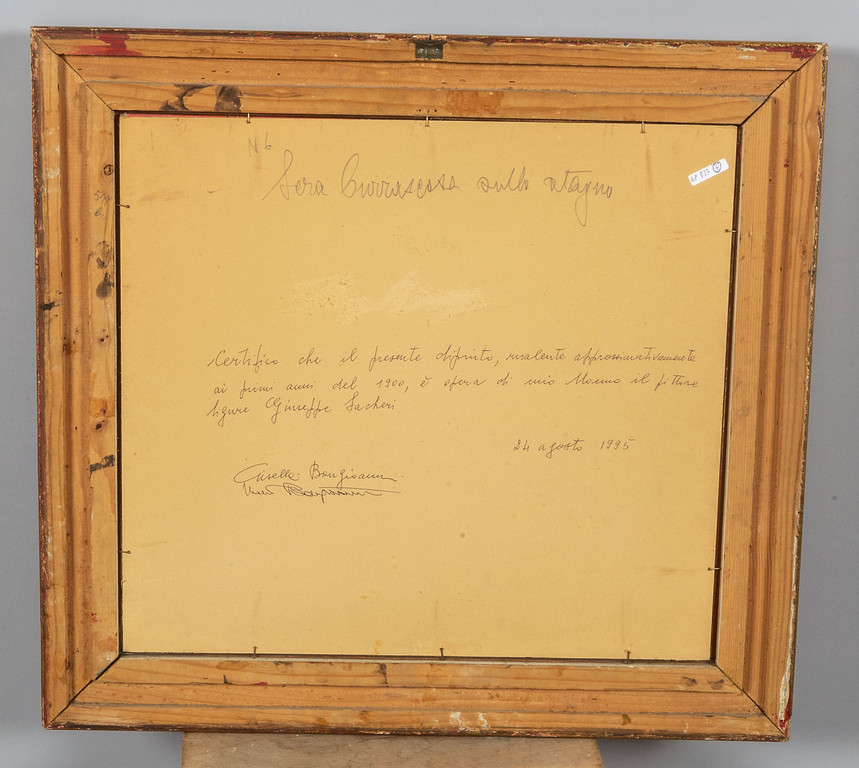 N 6
Sera Burrascosa sullo stagno
Certifico che il presente dipinto, risalente approssimativamente
ai primi anni del 1900, è opera di mio Nonno il pittore
ligure Giuseppe Sacheri
24 agosto 1995
Gisella Bongioanni